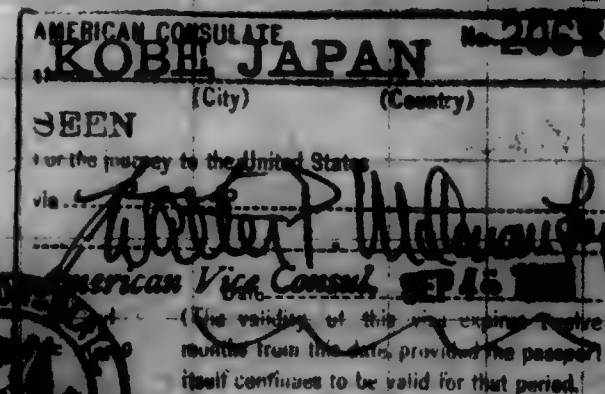 AMERICAN CONSULATE
No. 2063
KOBE JAPAN
(City) (Country)
SEEN
For the journey to the United States
via
American Vice Consul
Date SEP 16
(The validity of this visa expires twelve
months from this date, provided the passport
itself continues to be valid for that period.)